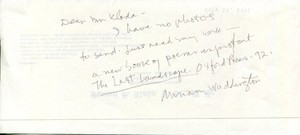 Dear Mr Kloda -
I have no photos
to send. Just read my work —
a new book of poems is just out
The Last Landscape. Oxford Press. 92.
Miriam Waddington